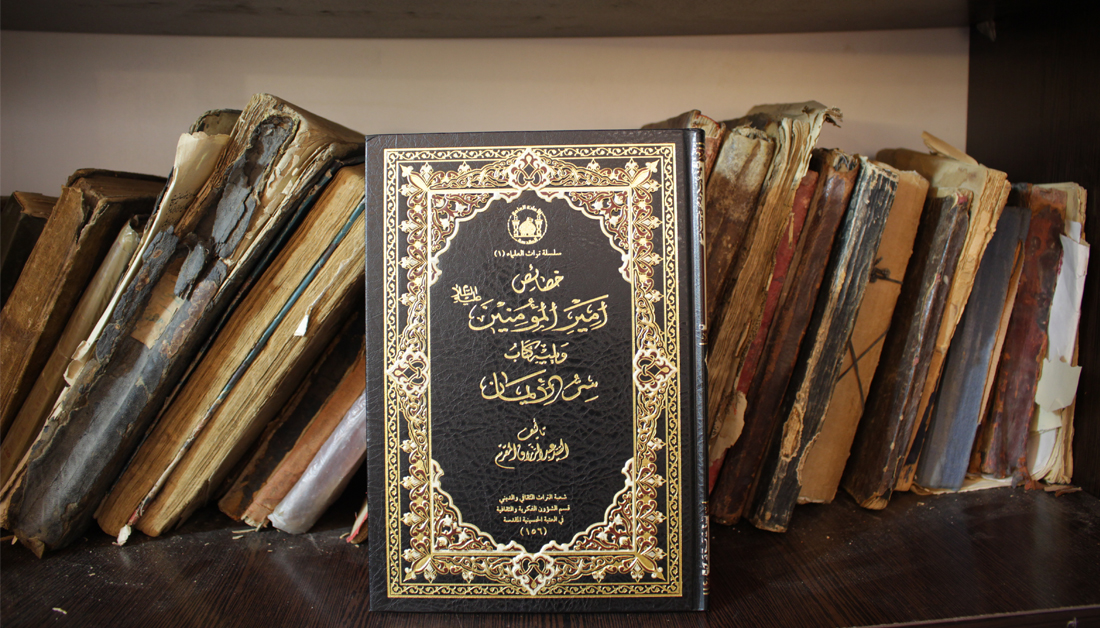 سلسلة تراث العلماء (١)
خصائص
أمير المؤمنين
عليه السلام
ويليه كتاب
سر الإيمان
تأليف
السيد عبد الرزاق المقرم
شعبة التراث الثقافي والديني
قسم الشؤون الفكرية والثقافية
في العتبة الحسينية المقدسة
(١٥٦)